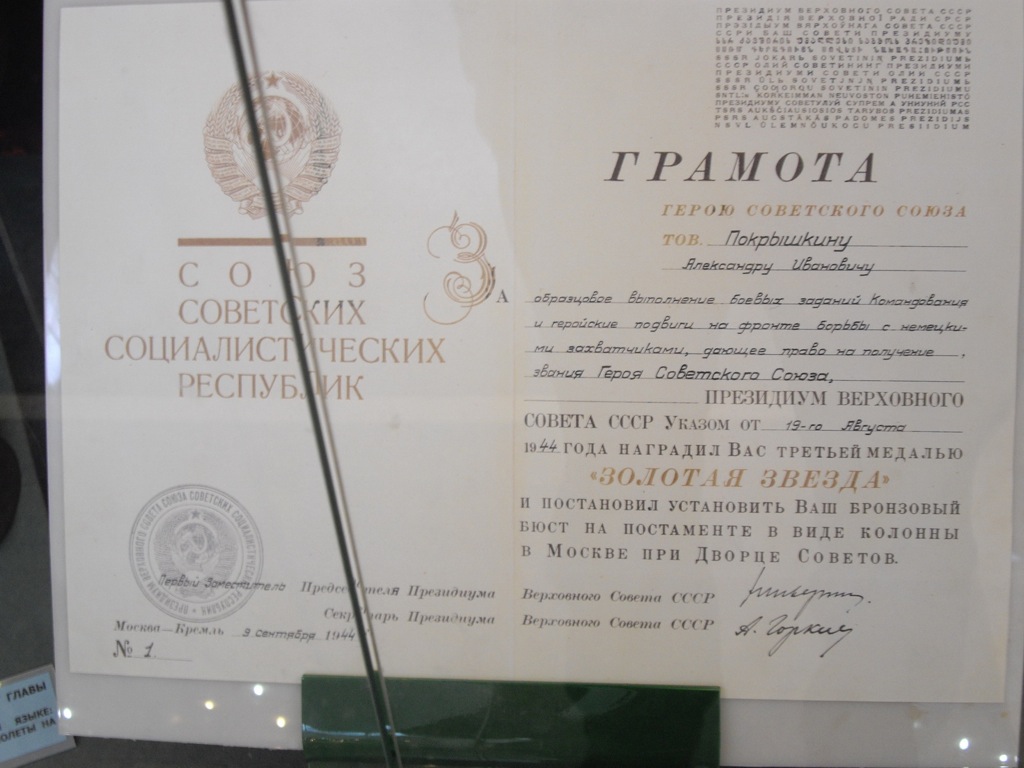 СОЮЗ
СОВЕТСКИХ
СОЦИАЛИСТИЧЕСКИХ
РЕСПУБЛИК
ПРЕЗИДИУМ ВЕРХОВНОГО СОВЕТА СССР
ПРЕЗИДІЯ ВЕРХОВНОЇ РАДИ СРСР
ПРЭЗІДЫУМ ВЯРХОЎНАГА СОВЕТА СССР
СССР ОЛИЙ СОВЕТИНИНГ ПРЕЗИДИУМИ
ПРЕЗИДИУМИ СОВЕТИ ОЛИИ СССР
NSVL ÜLEMNÕUKOGU PRESIIDIUM
ГРАМОТА
ГЕРОЮ СОВЕТСКОГО СОЮЗА
ТОВ. Покрышкину
Александру Ивановичу
ЗА образцовое выполнение боевых заданий Командования
и геройские подвиги на фронте борьбы с немецки-
ми захватчиками, дающее право на получение,
звания Героя Советского Союза,
ПРЕЗИДИУМ ВЕРХОВНОГО
СОВЕТА СССР УКАЗОМ ОТ 19-го Августа
1944 ГОДА НАГРАДИЛ ВАС ТРЕТЬЕЙ МЕДАЛЬЮ
«ЗОЛОТАЯ ЗВЕЗДА»
И ПОСТАНОВИЛ УСТАНОВИТЬ ВАШ БРОНЗОВЫЙ
БЮСТ НА ПОСТАМЕНТЕ В ВИДЕ КОЛОННЫ
В МОСКВЕ ПРИ ДВОРЦЕ СОВЕТОВ.
Первый Заместитель Председателя Президиума Верховного Совета СССР
Секретарь Президиума Верховного Совета СССР А. Горкин
Москва—Кремль 9 сентября 1944
№ 1.
ГЛАВЫ
ЯЗЫКЕ:
НА